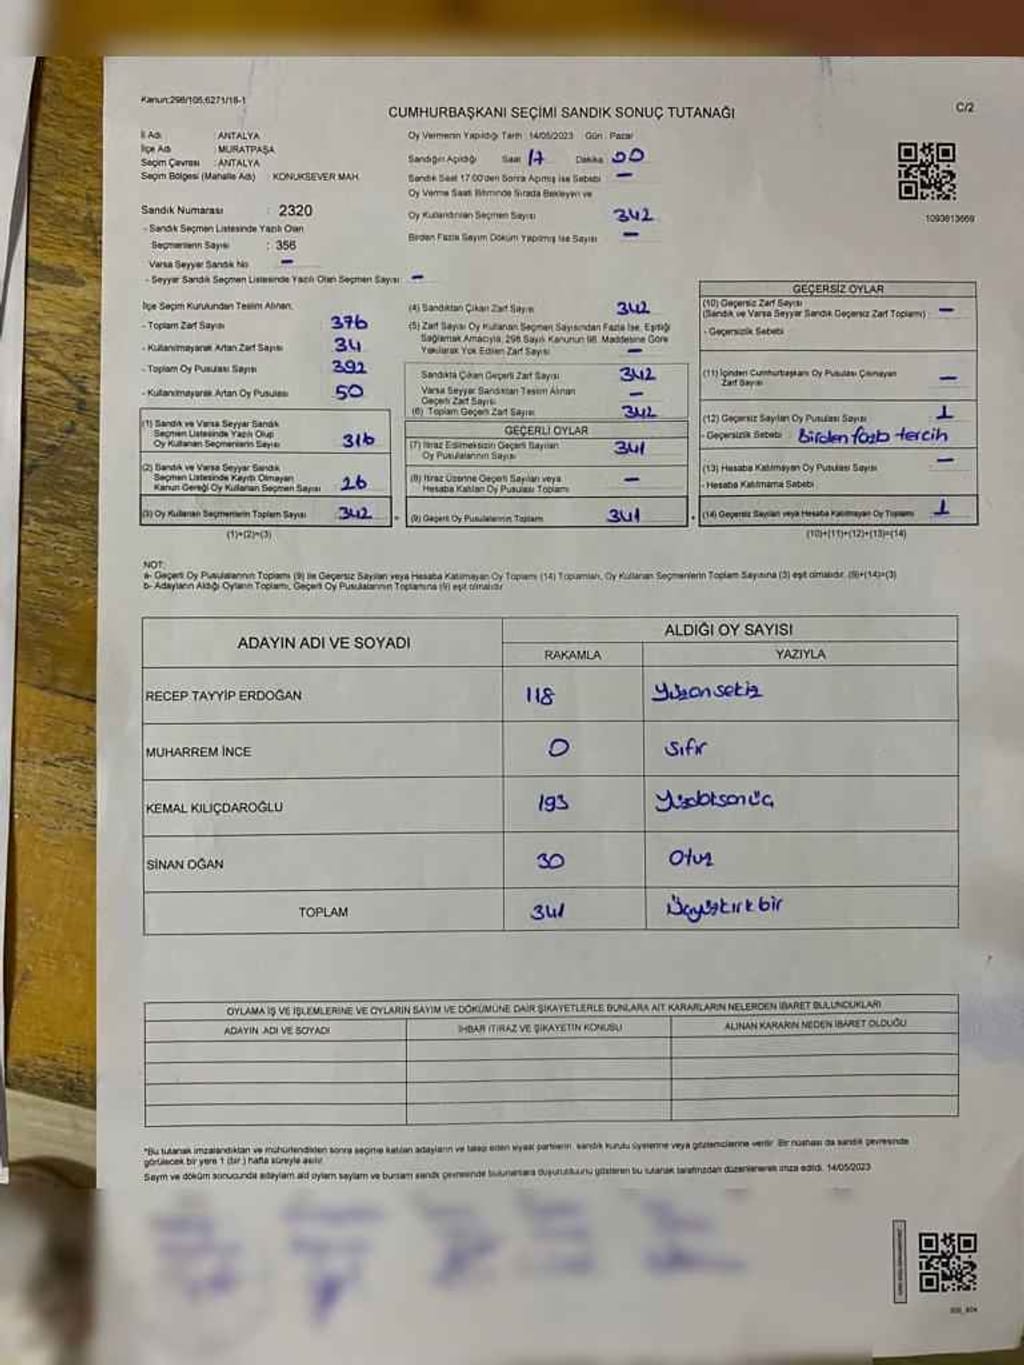 Kanun:298/105;6271/16-1
CUMHURBAŞKANI SEÇİMİ SANDIK SONUÇ TUTANAĞI
C/2
İl Adı : ANTALYA
İlçe Adı : MURATPAŞA
Seçim Çevresi : ANTALYA
Seçim Bölgesi (Mahalle Adı) : KONUKSEVER MAH.
Sandık Numarası : 2320
- Sandık Seçmen Listesinde Yazılı Olan
Seçmenlerin Sayısı : 356
Varsa Seyyar Sandık No –
- Seyyar Sandık Seçmen Listesinde Yazılı Olan Seçmen Sayısı : –
Oy Vermenin Yapıldığı Tarih : 14/05/2023 Gün : Pazar
Sandığın Açıldığı Saat 17 Dakika 00
Sandık Saat 17:00'den Sonra Açılmış İse Sebebi –
Oy Verme Saati Bitiminde Sırada Bekleyen ve
Oy Kullandırılan Seçmen Sayısı 342
Birden Fazla Sayım Döküm Yapılmış İse Sayısı –
1093613669
İlçe Seçim Kurulundan Teslim Alınan:
- Toplam Zarf Sayısı 376
- Kullanılmayarak Artan Zarf Sayısı 34
- Toplam Oy Pusulası Sayısı 392
- Kullanılmayarak Artan Oy Pusulası 50
(1) Sandık ve Varsa Seyyar Sandık
Seçmen Listesinde Yazılı Olup
Oy Kullanan Seçmenlerin Sayısı 316
(2) Sandık ve Varsa Seyyar Sandık
Seçmen Listesinde Kayıtlı Olmayan
Kanun Gereği Oy Kullanan Seçmen Sayısı 26
(3) Oy Kullanan Seçmenlerin Toplam Sayısı 342
(1)+(2)=(3)
(4) Sandıktan Çıkan Zarf Sayısı 342
(5) Zarf Sayısı Oy Kullanan Seçmen Sayısından Fazla İse, Eşitliği
Sağlamak Amacıyla, 298 Sayılı Kanunun 98. Maddesine Göre
Yakılarak Yok Edilen Zarf Sayısı –
Sandıkta Çıkan Geçerli Zarf Sayısı 342
Varsa Seyyar Sandıktan Teslim Alınan
Geçerli Zarf Sayısı –
(6) Toplam Geçerli Zarf Sayısı 342
GEÇERLİ OYLAR
(7) İtiraz Edilmeksizin Geçerli Sayılan
Oy Pusulalarının Sayısı 341
(8) İtiraz Üzerine Geçerli Sayılan veya
Hesaba Katılan Oy Pusulası Toplamı –
(9) Geçerli Oy Pusulalarının Toplamı 341
GEÇERSİZ OYLAR
(10) Geçersiz Zarf Sayısı
(Sandık ve Varsa Seyyar Sandık Geçersiz Zarf Toplamı) –
- Geçersizlik Sebebi
(11) İçinden Cumhurbaşkanı Oy Pusulası Çıkmayan
Zarf Sayısı –
(12) Geçersiz Sayılan Oy Pusulası Sayısı 1
- Geçersizlik Sebebi Birden fazla tercih
(13) Hesaba Katılmayan Oy Pusulası Sayısı –
- Hesaba Katılmama Sebebi
(14) Geçersiz Sayılan veya Hesaba Katılmayan Oy Toplamı 1
(10)+(11)+(12)+(13)=(14)
NOT:
a- Geçerli Oy Pusulalarının Toplamı (9) ile Geçersiz Sayılan veya Hesaba Katılmayan Oy Toplamı (14) Toplamları, Oy Kullanan Seçmenlerin Toplam Sayısına (3) eşit olmalıdır. (9)+(14)=(3)
b- Adayların Aldığı Oyların Toplamı, Geçerli Oy Pusulalarının Toplamına (9) eşit olmalıdır
ADAYIN ADI VE SOYADI
ALDIĞI OY SAYISI
RAKAMLA YAZIYLA
RECEP TAYYİP ERDOĞAN 118 Yüzonsekiz
MUHARREM İNCE 0 Sıfır
KEMAL KILIÇDAROĞLU 193 Yüzdoksanüç
SİNAN OĞAN 30 Otuz
TOPLAM 341 Üçyüzkırkbir
OYLAMA İŞ VE İŞLEMLERİNE VE OYLARIN SAYIM VE DÖKÜMÜNE DAİR ŞİKAYETLERLE BUNLARA AİT KARARLARIN NELERDEN İBARET BULUNDUKLARI
ADAYIN ADI VE SOYADI İHBAR İTİRAZ VE ŞİKAYETİN KONUSU ALINAN KARARIN NEDEN İBARET OLDUĞU
*Bu tutanak imzalandıktan ve mühürlendikten sonra seçime katılan adayların ve talep eden siyasi partilerin, sandık kurulu üyelerine veya gözlemcilerine verilir. Bir nüshası da sandık çevresinde
görülecek bir yere 1 (bir) hafta süreyle asılır.
Sayım ve döküm sonucunda adayların aldığı oyların sayıları ve bunların sandık çevresinde bulunanlara duyurulduğunu gösteren bu tutanak tarafımızdan düzenlenerek imza edildi. 14/05/2023